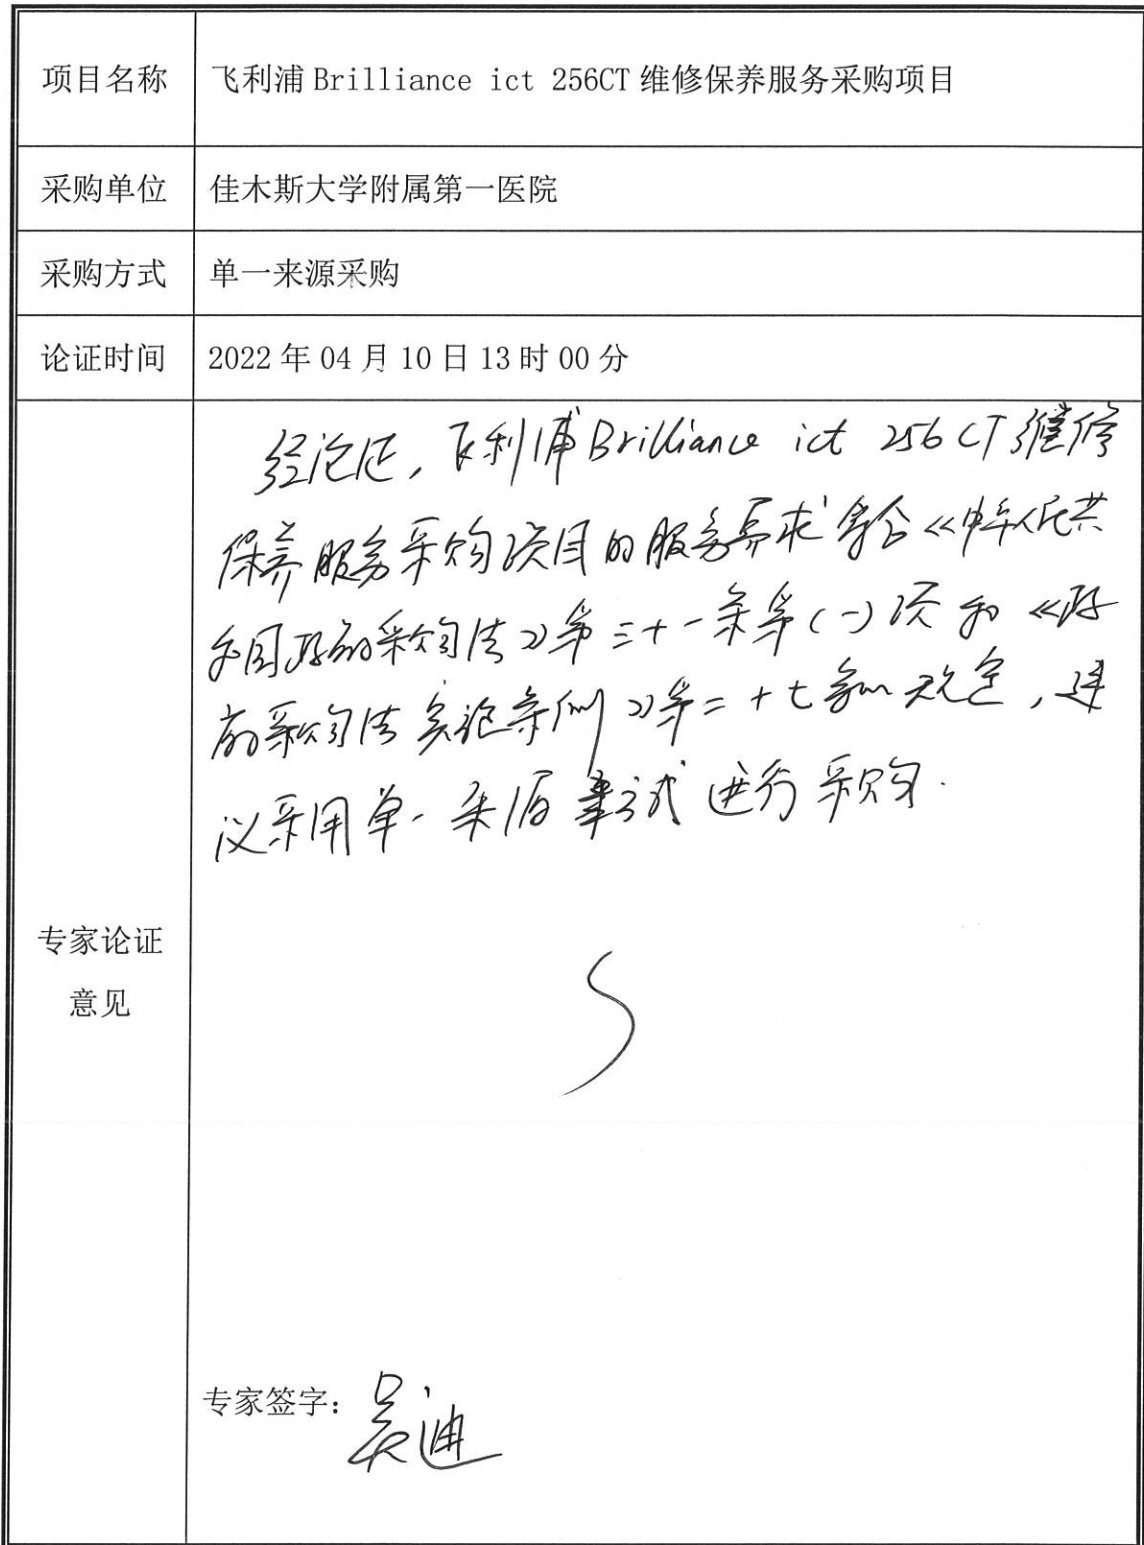 项目名称 飞利浦 Brilliance ict 256CT 维修保养服务采购项目
采购单位 佳木斯大学附属第一医院
采购方式 单一来源采购
论证时间 2022 年 04 月 10 日 13 时 00 分
专家论证
意见
经论证，飞利浦Brilliance ict 256CT维修
保养服务采购项目的服务需求符合《中华人民共
和国政府采购法》第三十一条第(一)项和《政
府采购法实施条例》第二十七条的规定，建
议采用单一来源方式进行采购.
专家签字：吴迪